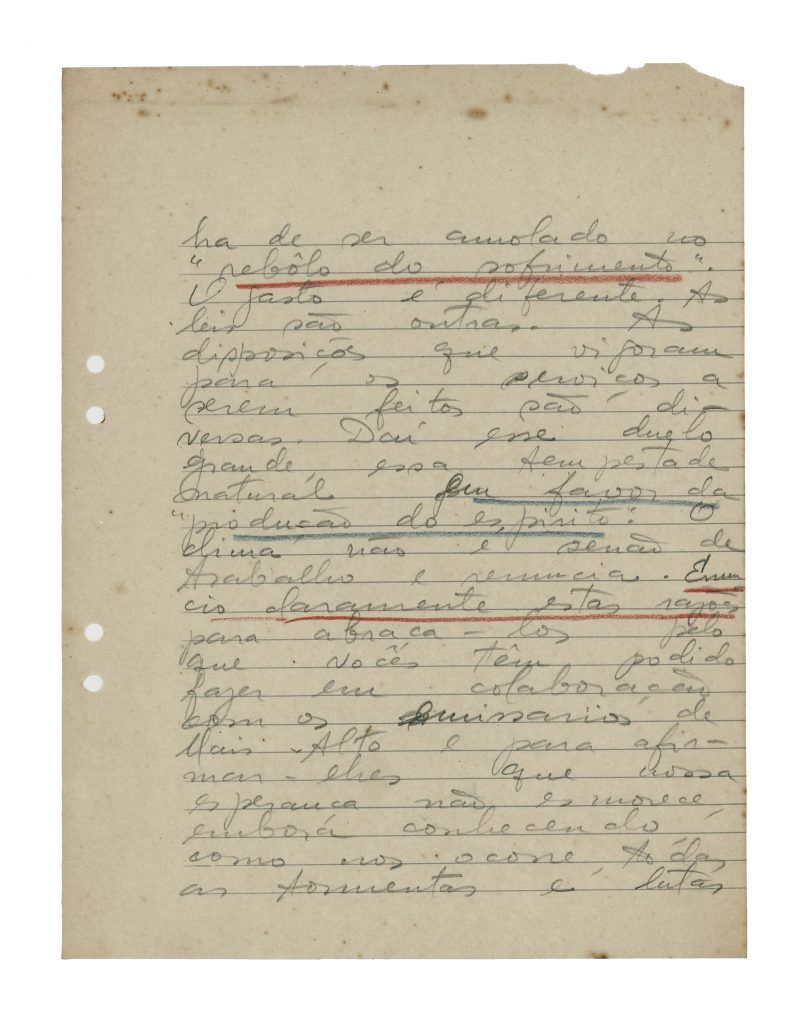 ha de ser amolado no
"rebôlo do sofrimento".
O gasto é diferente. As
leis são outras. As
disposições que vigoram
para os serviços a
serem feitos são di-
versas. Daí esse duelo
grande, essa tempestade
natural em favor da
"produção do espirito". O
clima não é senão de
trabalho e renuncia. Enun
cio claramente estas razões
para abraça-los pelo
que vocês têm podido
fazer em colaboração
com os emissarios de
Mais Alto e para afir-
mar-lhes que nossa
esperança não esmorece,
embora conhecendo,
como nos ocorre, tôdas
as tormentas e lutas